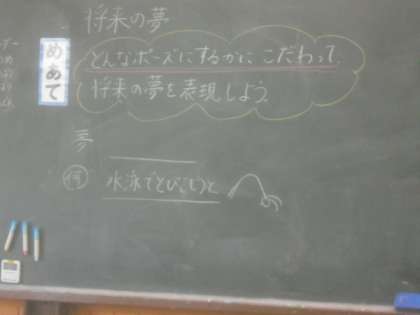 将来の夢
めあて
どんなポーズにするかにこだわって、
将来の夢を表現しよう。
夢
例 水泳でとびこもうと